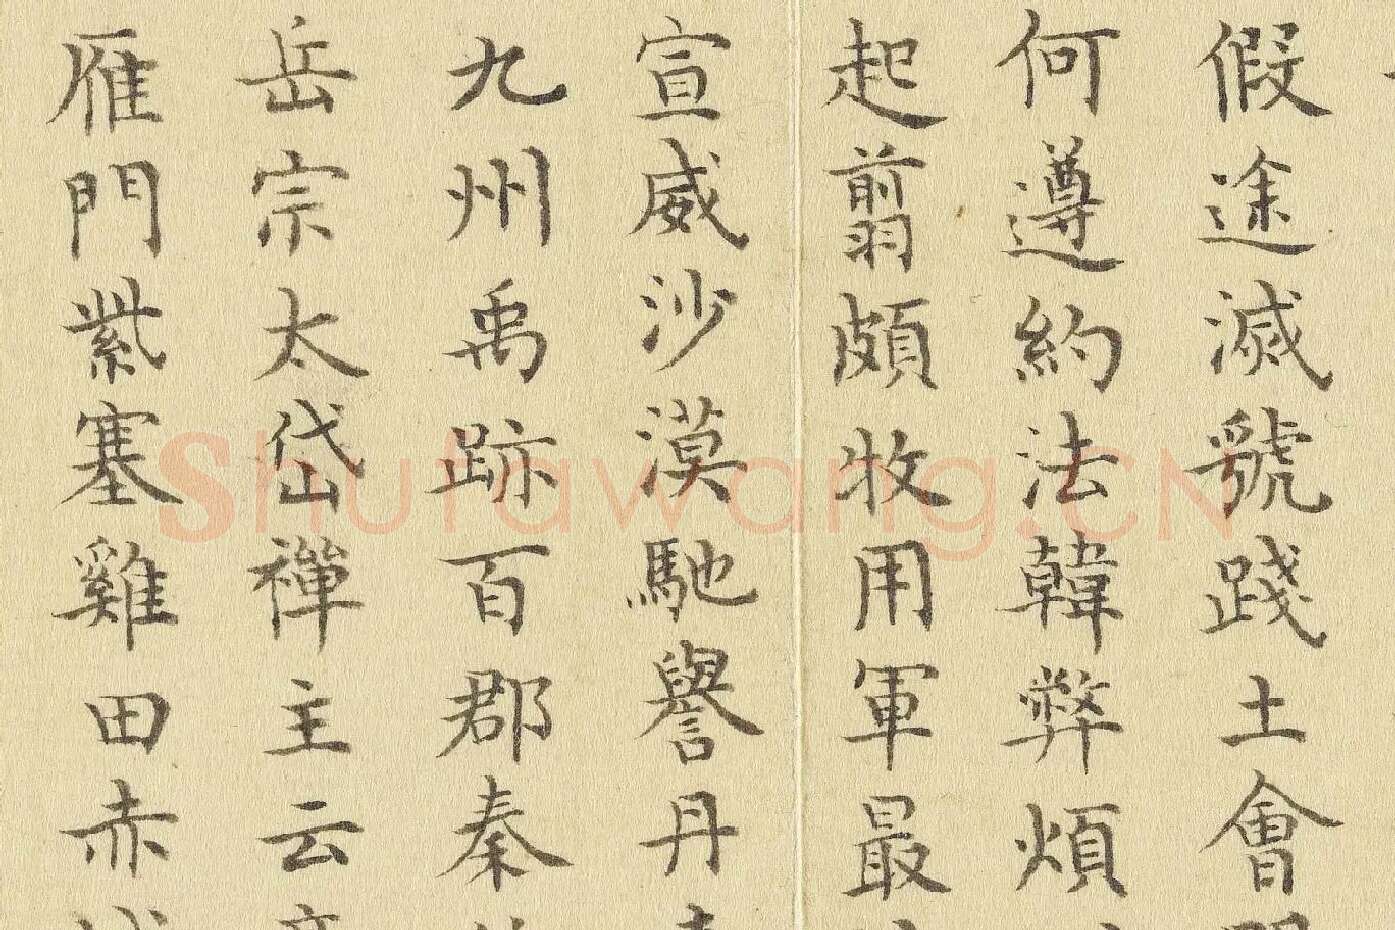 假途滅號踐土會
何遵約法韓弊煩
起翦頗牧用軍最
宣威沙漠馳譽丹
九州禹跡百郡秦
岳宗太岱禪主云
雁門紫塞雞田赤
shufawang.CN